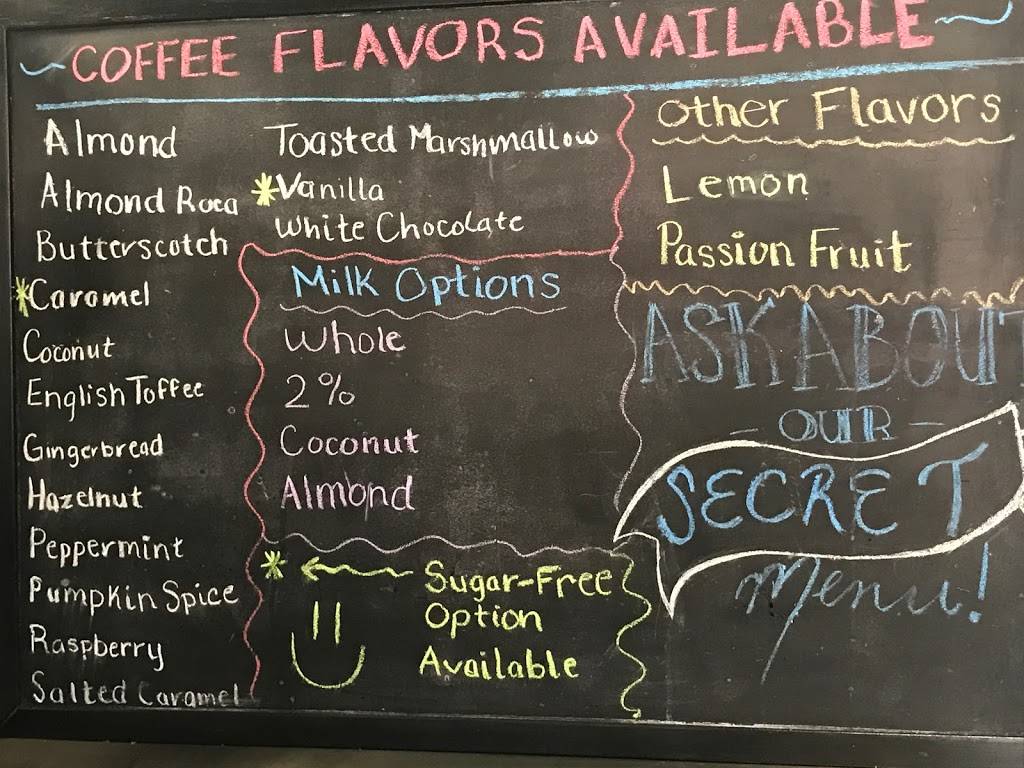 COFFEE FLAVORS AVAILABLE
Almond
Almond Roca
Butterscotch
*Caramel
Coconut
English Toffee
Gingerbread
Hazelnut
Peppermint
Pumpkin Spice
Raspberry
Salted Caramel
Toasted Marshmallow
*Vanilla
White Chocolate
Milk Options
Whole
2%
Coconut
Almond
* Sugar-Free
Option
Available
Other Flavors
Lemon
Passion Fruit
ASK ABOUT
- OUR -
SECRET
Menu!